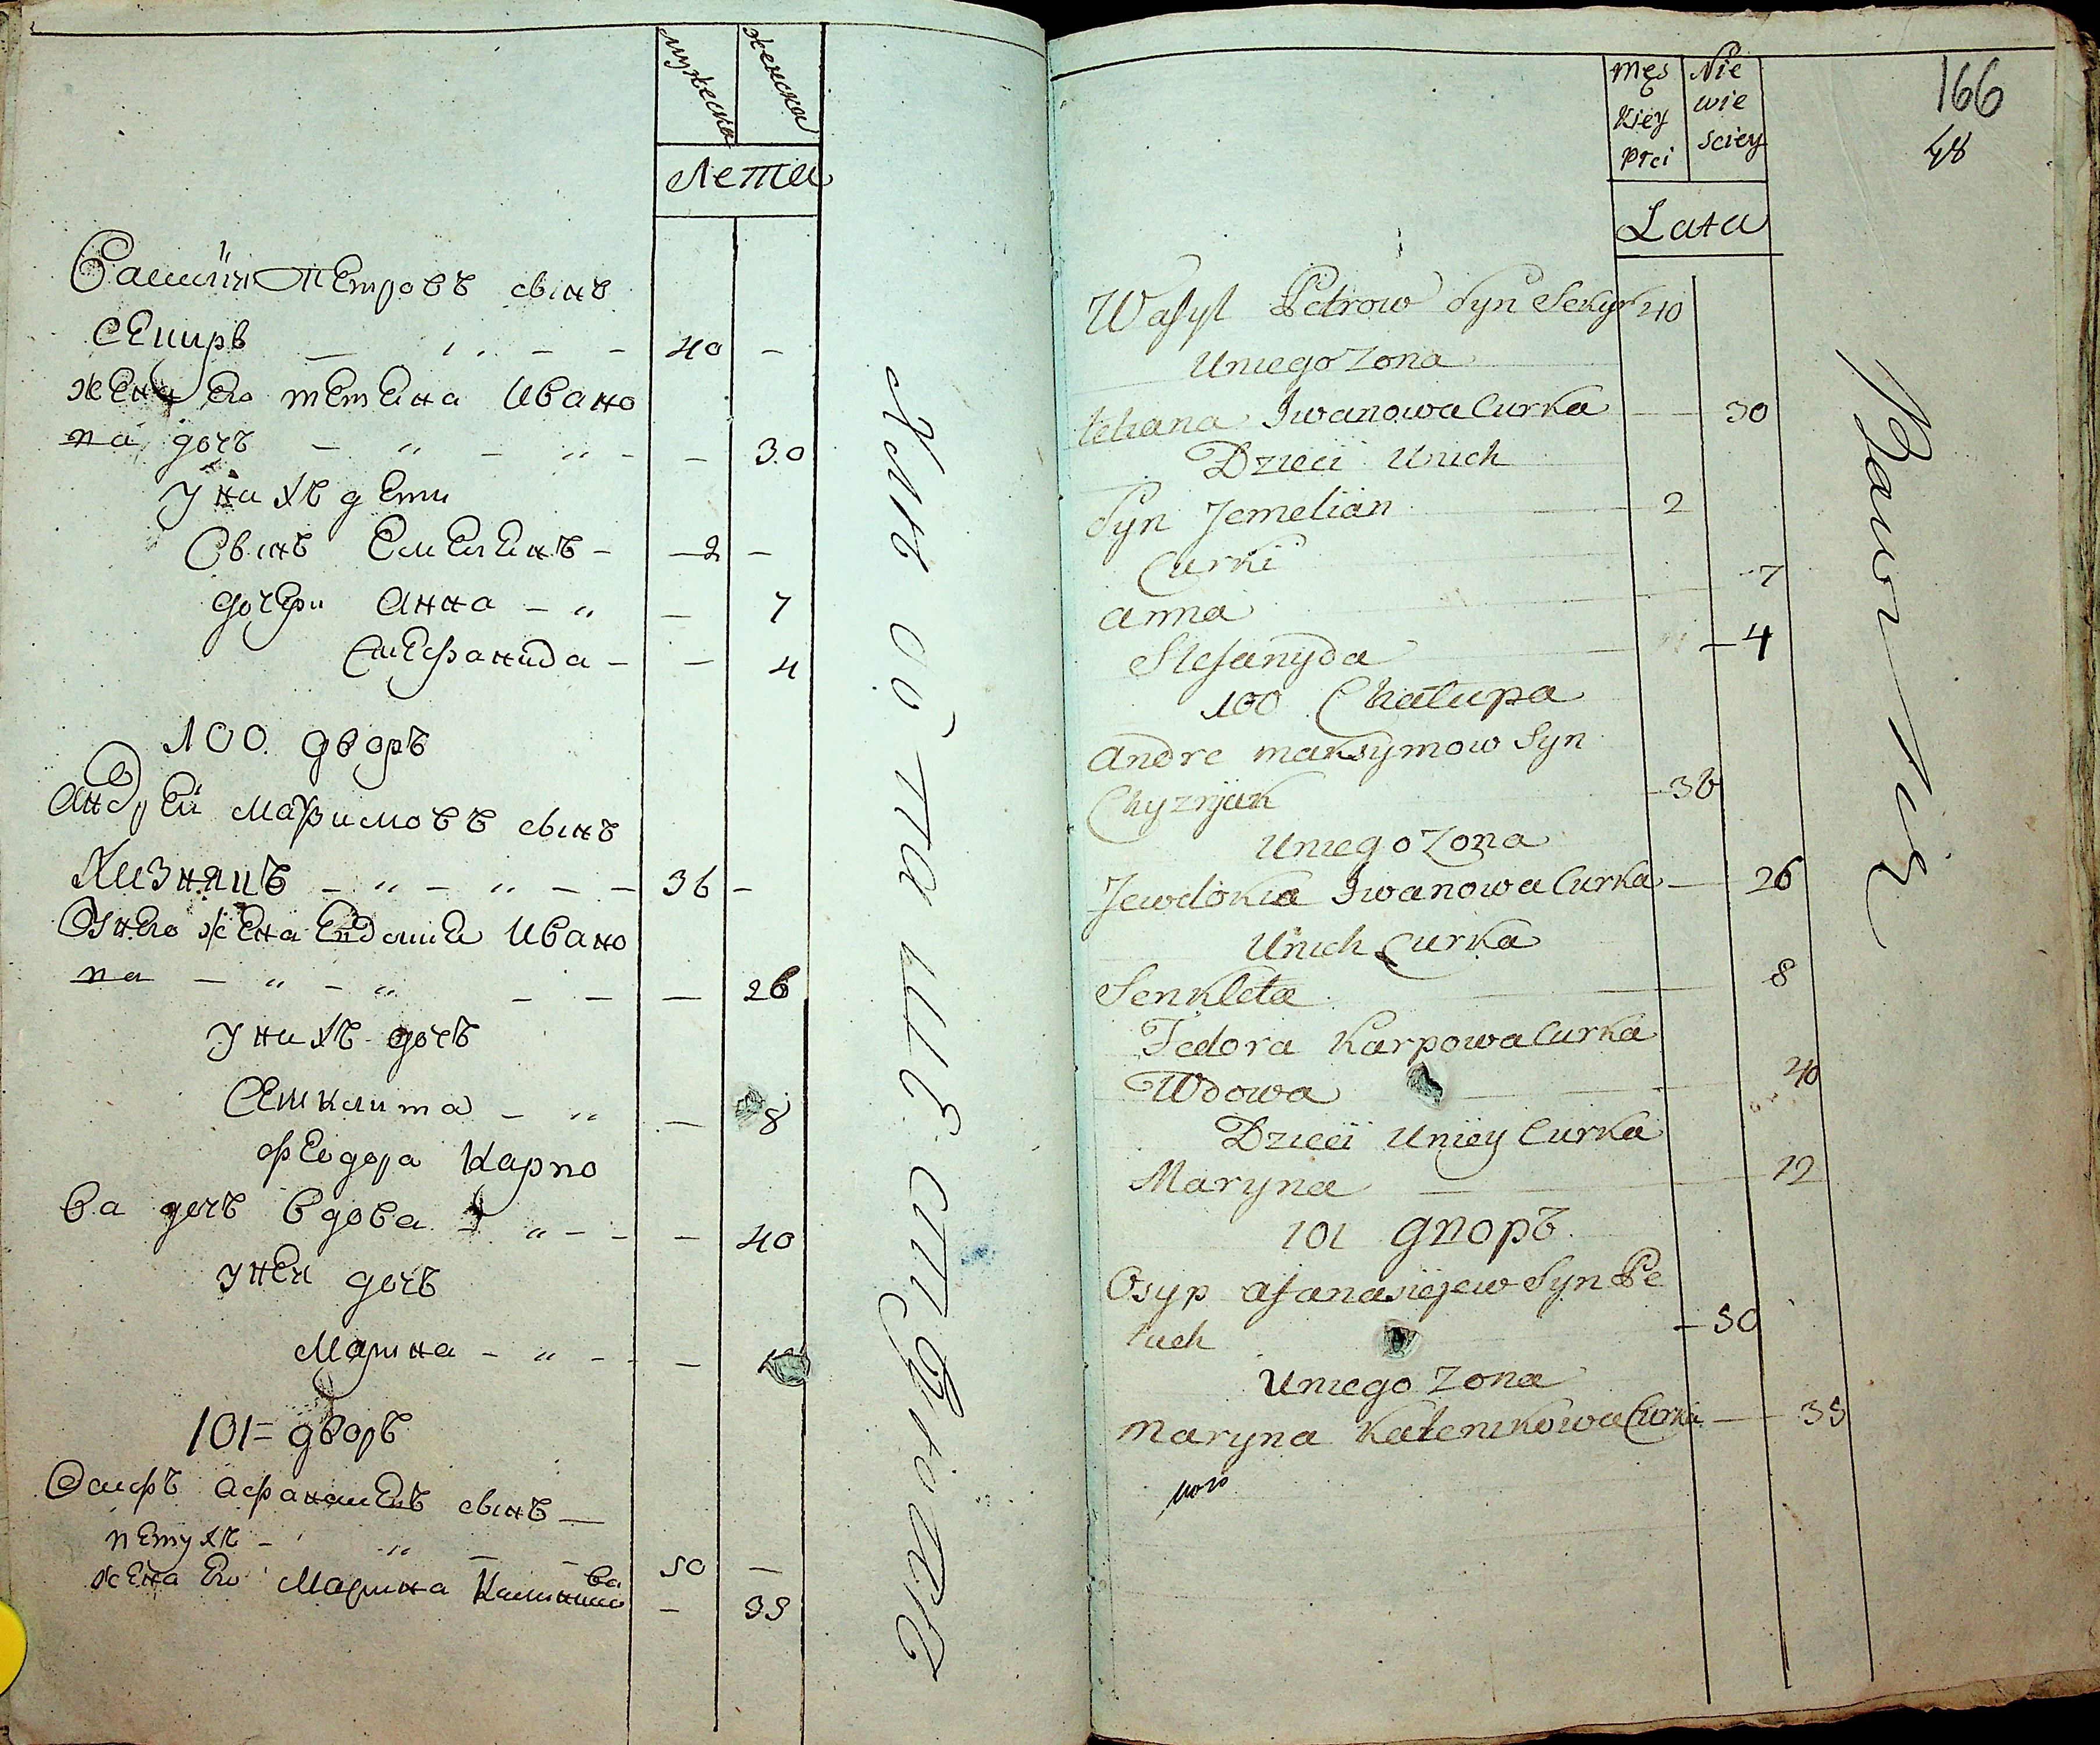 мужеска
женска
Лета
Василій Петровъ сынъ
Секиръ 40 -
жена его тетяна Ивано
ва дочъ - 30
у нихъ дети
Сынъ Емелянъ - 2 -
дочери Анна - 7
Стефанида - 4
100 дворъ
Андрей Максимовъ сынъ
Хизнякъ 36 -
У него жена Евдокия Ивано
ва - 26
у нихъ дочъ
Сенклита - 8
Феодора Карпо
ва дочъ вдова - 40
у ней дочъ
Марина -
101= дворъ
Осипъ Афанасиевъ сынъ
петухъ - 50 -
жена его Марина Калинико
ва - 35
166
48
Męs
kiey
płci
Nie
wie
sciey
Lata
Wasyl Petrow Syn Sekyr 40
U niego Zona
tetiana Iwanowa Curka 30
Dzieci U nich
Syn Jemelian 2
Curki
anna 7
Stefanyda 4
100 Chałupa
Andre maksymow Syn
Chyznjak 36
U niego Zona
Jewdokia Iwanowa Curka 26
U nich Curka
Senkleta 8
Fedora Karpowa Curka
Wdowa 40
Dzieci U niey Curka
Maryna 12
101 дворъ
Osyp afanasiejew Syn Pe
tuch 50
U niego Zona
Maryna Kalenikowa Curka 35